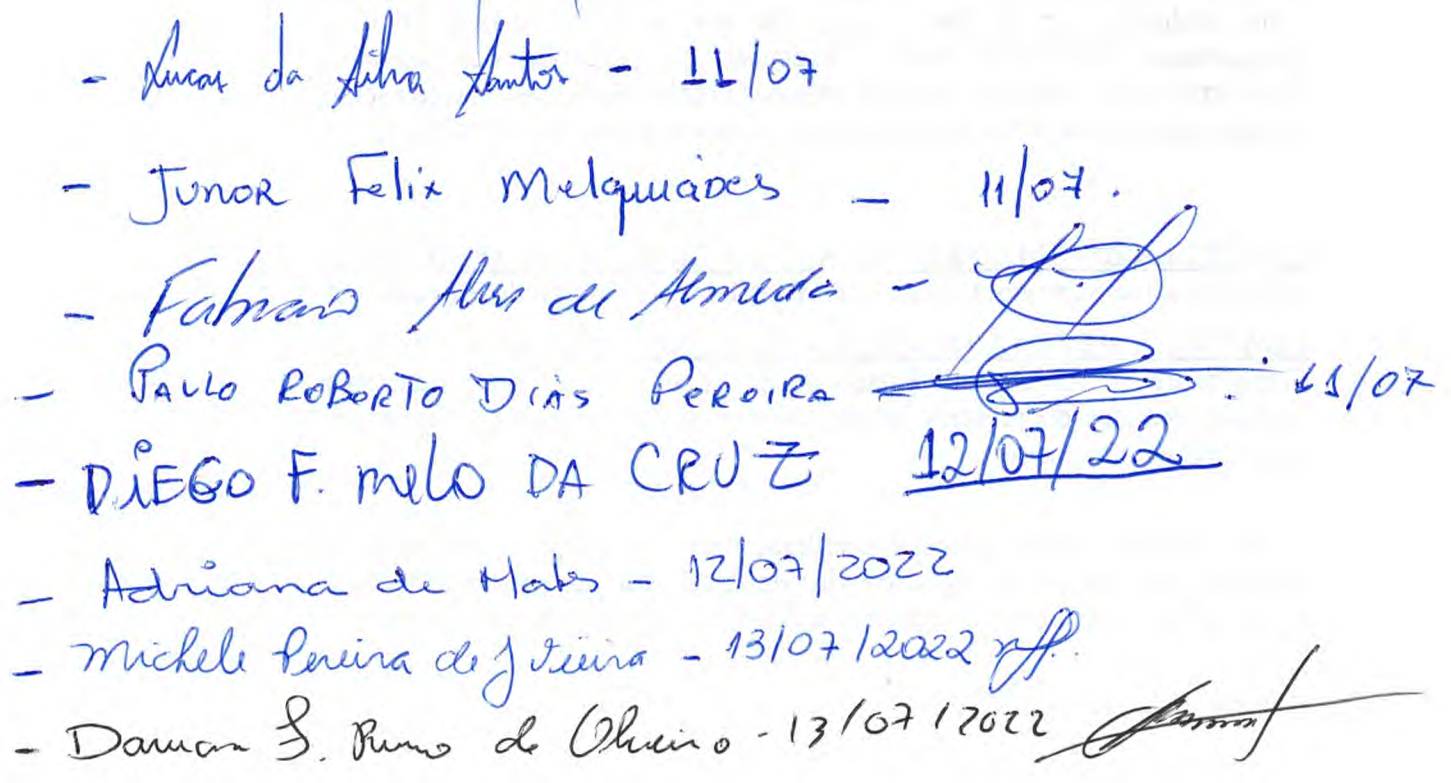 - Lucas da Silva Santos - 11/07
- JUNOR Felix Melquiades - 11/07.
- Fabiano Alves de Almeida -
- PAULO ROBERTO DIAS PEREIRA - 11/07
- DIEGO F. MELO DA CRUZ 12/07/22
- Adriana de Matos - 12/07/2022
- Michele Pereira de J Vieira - 13/07/2022
- S. de Oliveira - 13/07/2022